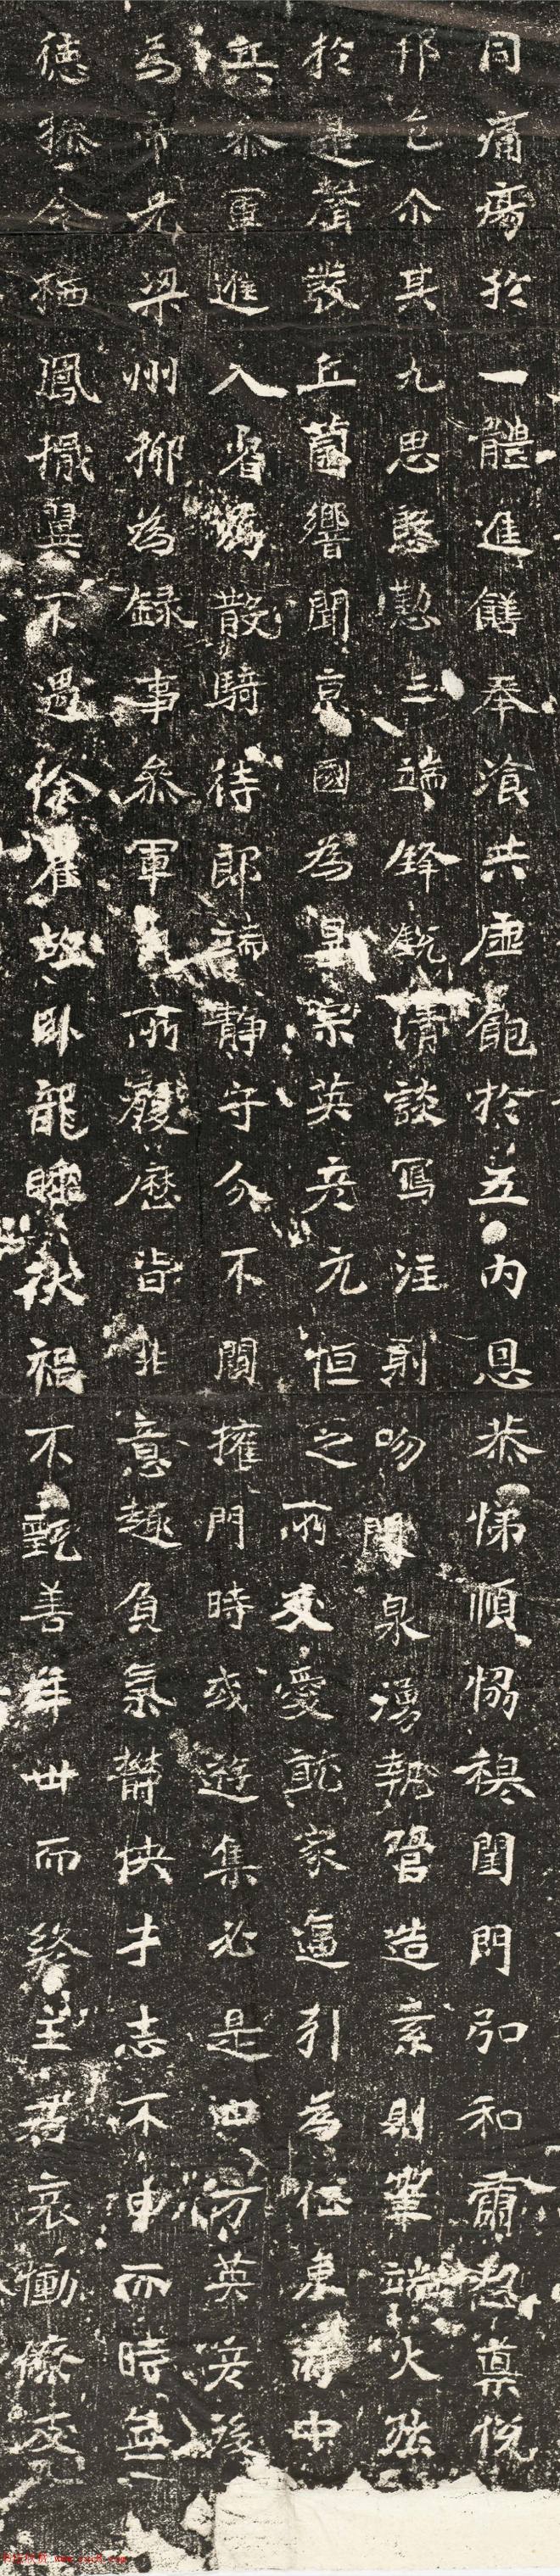 同痛癢於一體進饍奉飡共虛飽於五內恩恭悌順穆閨門引和肅悅
邦尒其九思慇懃三端鋒銳清談寫注則吻泉湧執管造素則筆端火
於是聲發丘薗響聞京國為宗英彥元恒之所友愛就家逼引為征東府中
兵參軍進入省為散騎待郎端靜守分不關權門時或遊集必是四方英後
為帝兄梁州抑為錄事參軍所履歷皆非意趣負氣鬱怏才志不申而時無
德操令栖鳳摋翼不遇徐故臥龍睡伏禍不甄善年卅而終主君哀慟僚友